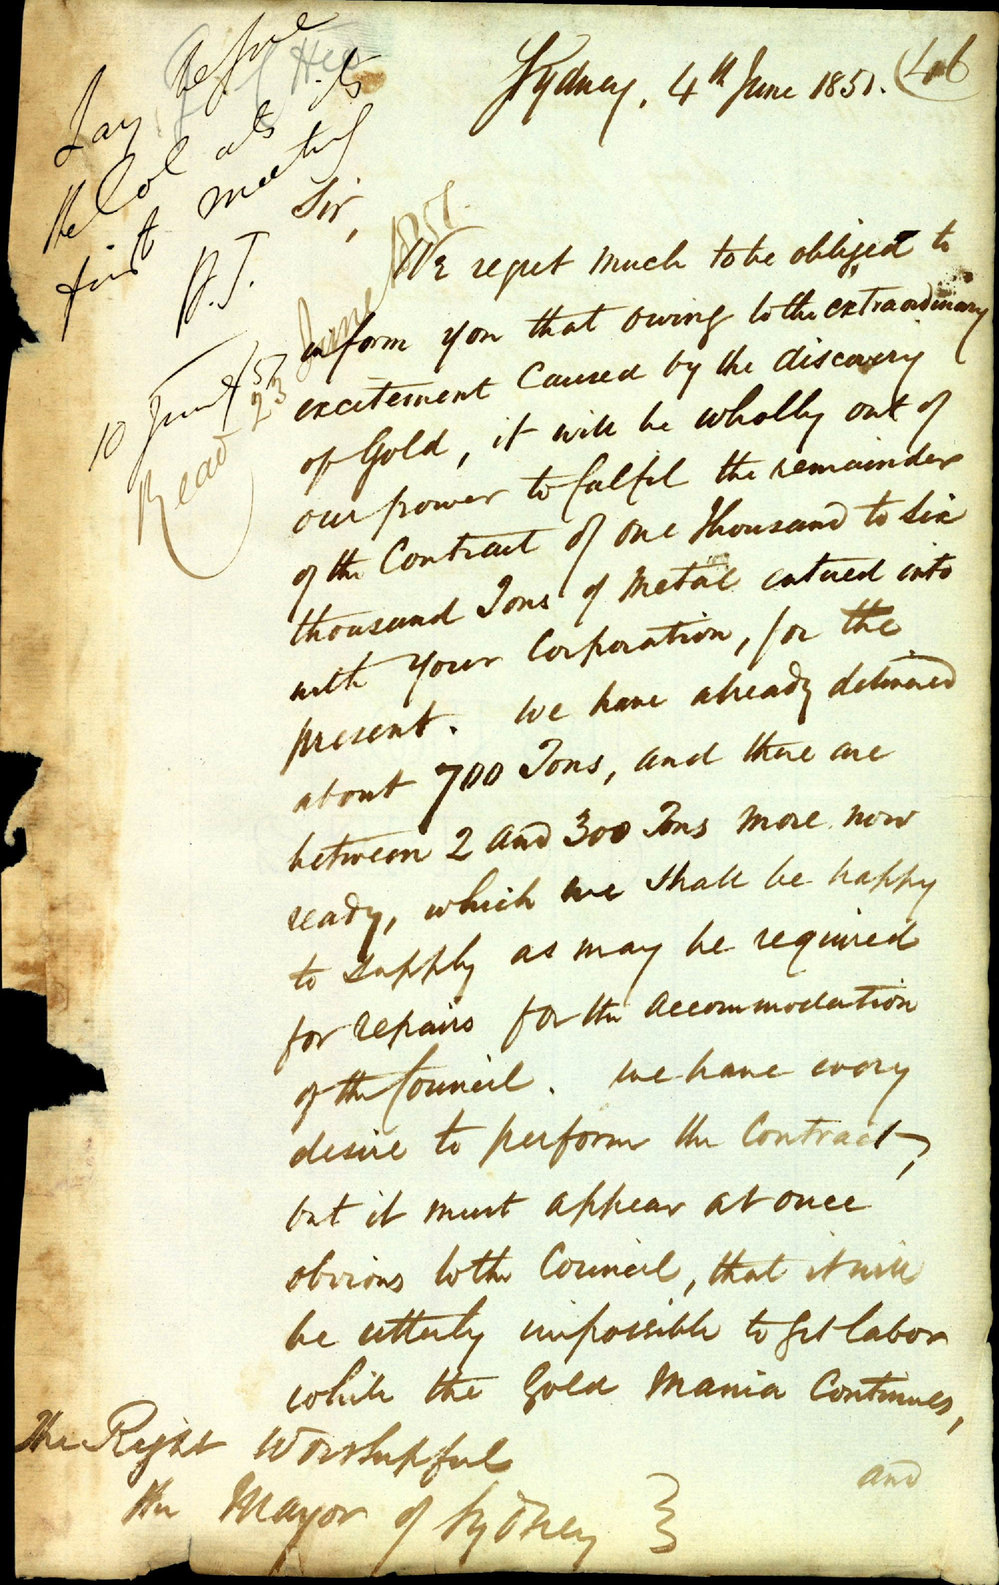 Sydney, 4th June 1851.
Lay before
the Col at its
first meeting
10 June/51
Read
June 1851.
Sir,
We regret much to be obliged to
inform you that owing to the extraordinary
excitement caused by the discovery
of Gold, it will be wholly out of
our power to fulfil the remainder
of the Contract of one thousand to six
thousand Tons of Metal entered into
with Your Corporation, for the
present. We have already delivered
about 700 Tons, and there are
between 2 and 300 Tons more now
ready, which we shall be happy
to supply as may be required
for repairs for the accommodation
of the Council. We have every
desire to perform the Contract,
but it must appear at once
obvious to the Council, that it will
be utterly impossible to get labor
while the Gold Mania Continues,
and
The Right Worshupful
the Mayor of Sydney }